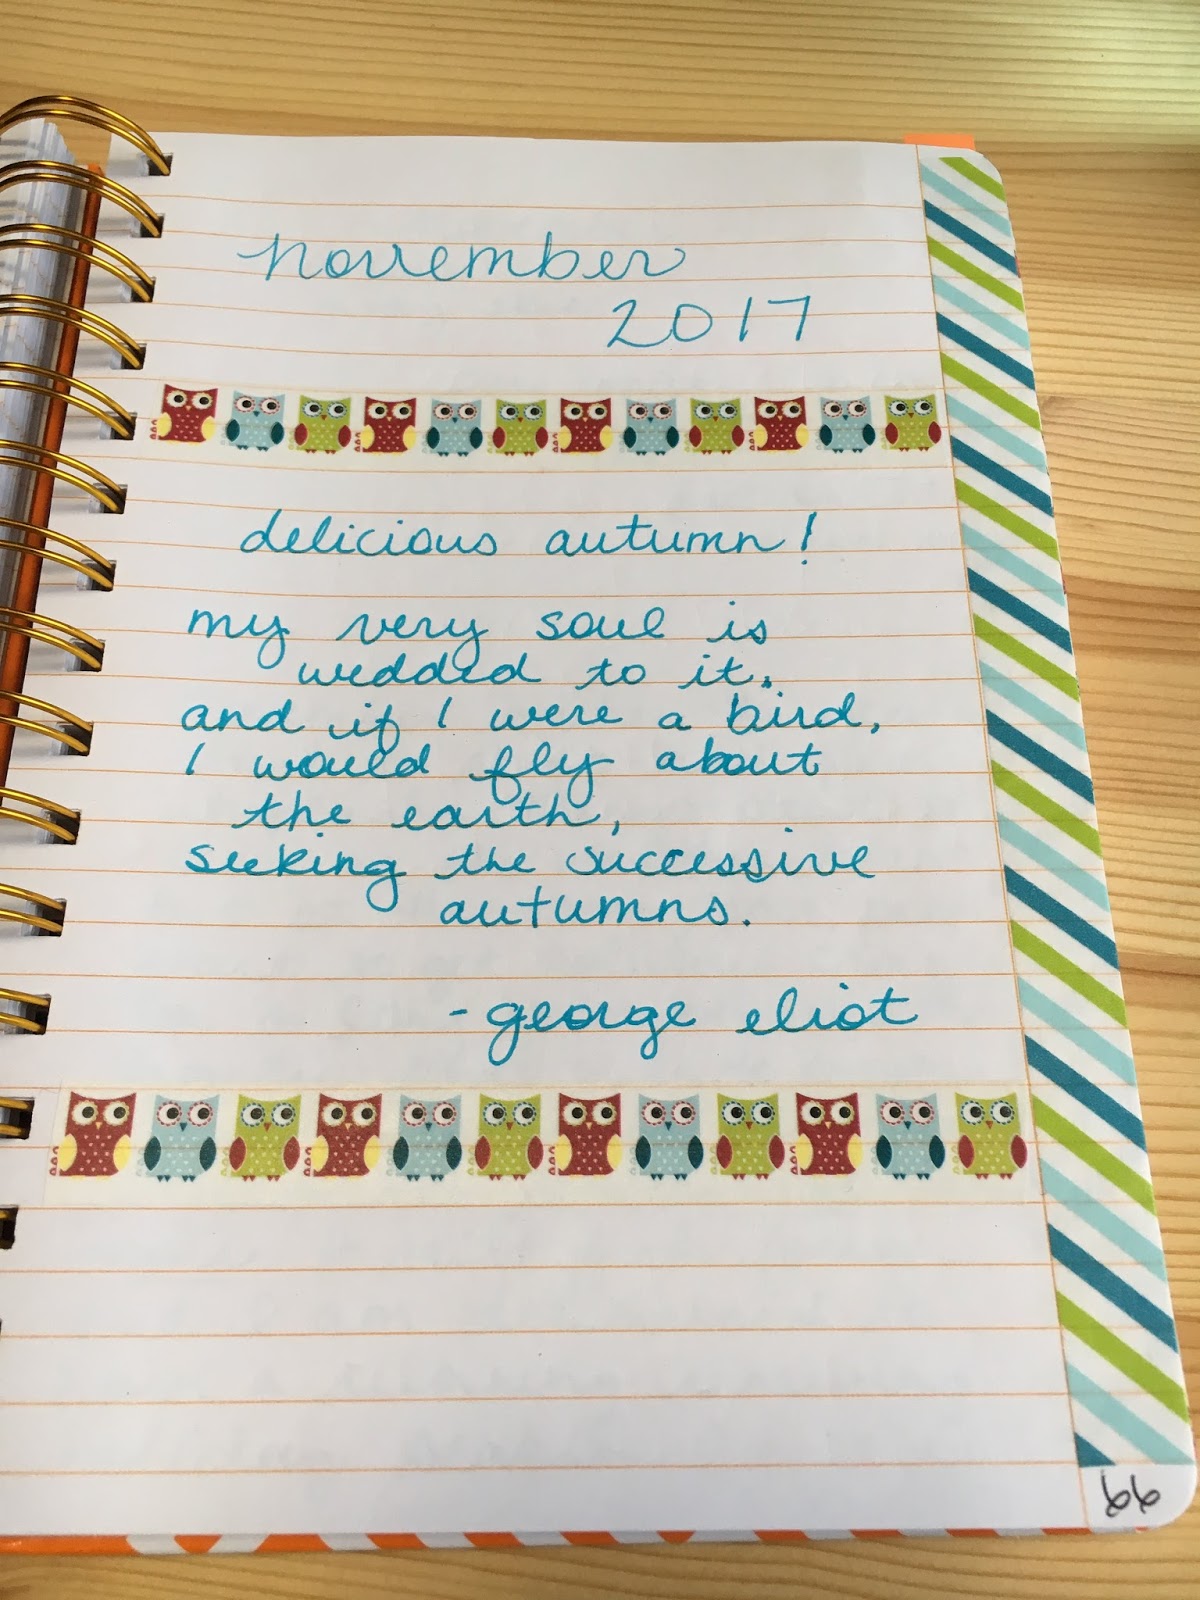 november
2017
delicious autumn!
my very soul is
wedded to it,
and if I were a bird,
I would fly about
the earth,
seeking the successive
autumns.
- george eliot
66